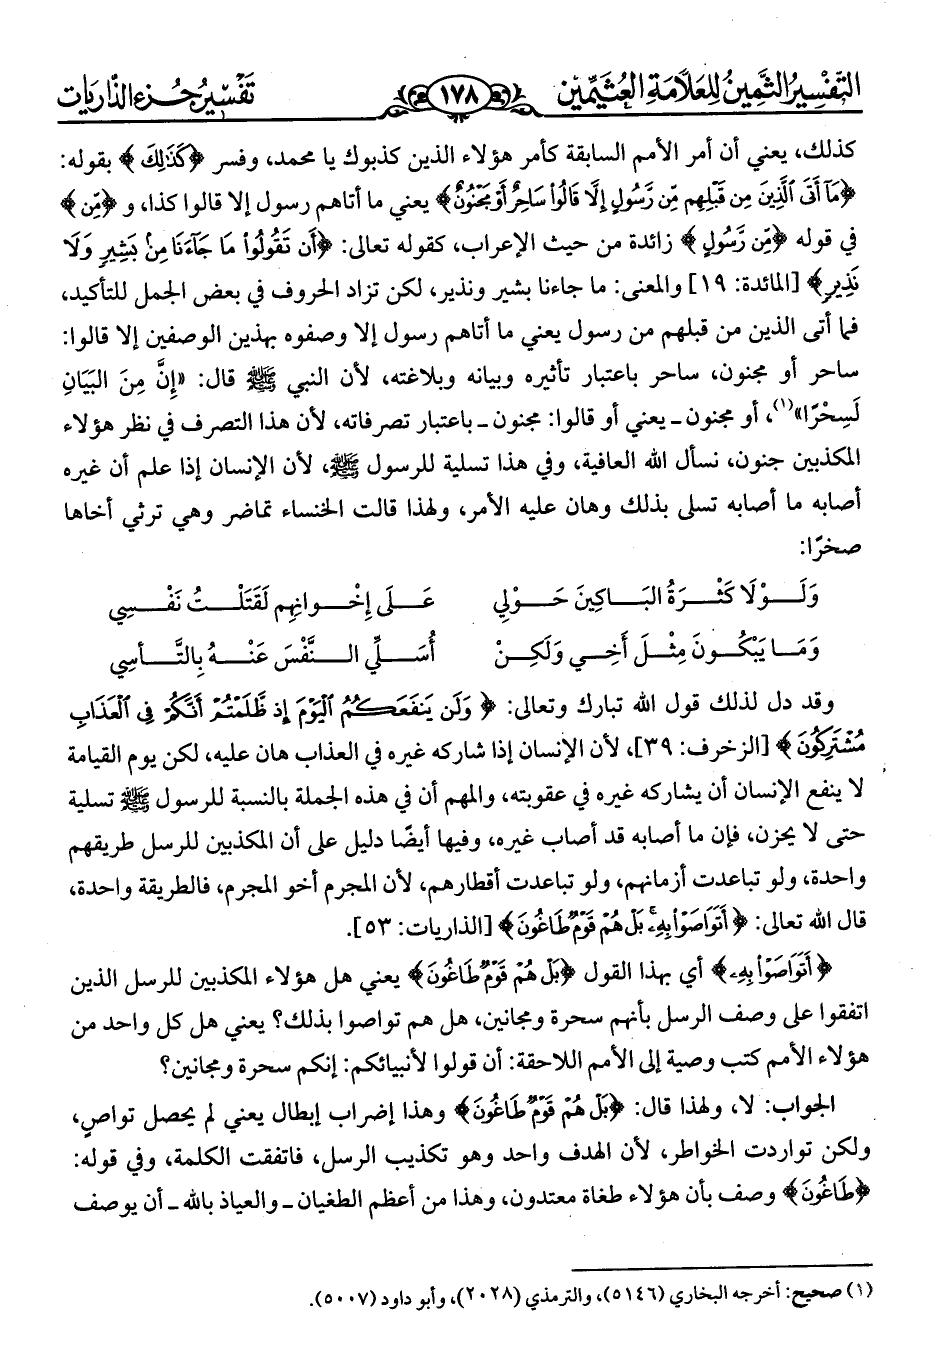 التَّفْسِيرُ الثَّمِينُ لِلْعَلَّامَةِ الْعُثَيْمِين
١٧٨
تَفْسِيرُ جُزْءِ الذَّارِيَات
كذلك، يعني أن أمر الأمم السابقة كأمر هؤلاء الذين كذبوك يا محمد، وفسر ﴿كَذَٰلِكَ﴾ بقوله:
﴿مَآ أَتَى ٱلَّذِينَ مِن قَبۡلِهِم مِّن رَّسُولٍ إِلَّا قَالُواْ سَاحِرٌ أَوۡ مَجۡنُونٌ﴾ يعني ما أتاهم رسول إلا قالوا كذا، و ﴿مِّن﴾
في قوله ﴿مِّن رَّسُولٍ﴾ زائدة من حيث الإعراب، كقوله تعالى: ﴿أَن تَقُولُواْ مَا جَآءَنَا مِنۢ بَشِيرٖ وَلَا
نَذِيرٖ﴾ [المائدة: ١٩] والمعنى: ما جاءنا بشير ونذير، لكن تزاد الحروف في بعض الجمل للتأكيد،
فما أتى الذين من قبلهم من رسول يعني ما أتاهم رسول إلا وصفوه بهذين الوصفين إلا قالوا:
ساحر أو مجنون، ساحر باعتبار تأثيره وبيانه وبلاغته، لأن النبي ﷺ قال: «إِنَّ مِنَ البَيَانِ
لَسِحْرًا»(١)، أو مجنون ـ يعني أو قالوا: مجنون ـ باعتبار تصرفاته، لأن هذا التصرف في نظر هؤلاء
المكذبين جنون، نسأل الله العافية، وفي هذا تسلية للرسول ﷺ، لأن الإنسان إذا علم أن غيره
أصابه ما أصابه تسلى بذلك وهان عليه الأمر، ولهذا قالت الخنساء تماضر وهي ترثي أخاها
صخرًا:
وَلَوْلَا كَثْرَةُ البَاكِينَ حَوْلِي عَلَى إِخْوَانِهِم لَقَتَلْتُ نَفْسِي
وَمَا يَبْكُونَ مِثْلَ أَخِي وَلَكِنْ أُسَلِّي النَّفْسَ عَنْهُ بِالتَّأَسِي
وقد دل لذلك قول الله تبارك وتعالى: ﴿وَلَن يَنفَعَكُمُ ٱلۡيَوۡمَ إِذ ظَّلَمۡتُمۡ أَنَّكُمۡ فِي ٱلۡعَذَابِ
مُشۡتَرِكُونَ﴾ [الزخرف: ٣٩]، لأن الإنسان إذا شاركه غيره في العذاب هان عليه، لكن يوم القيامة
لا ينفع الإنسان أن يشاركه غيره في عقوبته، والمهم أن في هذه الجملة بالنسبة للرسول ﷺ تسلية
حتى لا يحزن، فإن ما أصابه قد أصاب غيره، وفيها أيضًا دليل على أن المكذبين للرسل طريقهم
واحدة، ولو تباعدت أزمانهم، ولو تباعدت أقطارهم، لأن المجرم أخو المجرم، فالطريقة واحدة،
قال الله تعالى: ﴿أَتَوَاصَوۡاْ بِهِۦۚ بَلۡ هُمۡ قَوۡمٞ طَاغُونَ﴾ [الذاريات: ٥٣].
﴿أَتَوَاصَوۡاْ بِهِۦ﴾ أي بهذا القول ﴿بَلۡ هُمۡ قَوۡمٞ طَاغُونَ﴾ يعني هل هؤلاء المكذبين للرسل الذين
اتفقوا على وصف الرسل بأنهم سحرة ومجانين، هل هم تواصوا بذلك؟ يعني هل كل واحد من
هؤلاء الأمم كتب وصية إلى الأمم اللاحقة: أن قولوا لأنبيائكم: إنكم سحرة ومجانين؟
الجواب: لا، ولهذا قال: ﴿بَلۡ هُمۡ قَوۡمٞ طَاغُونَ﴾ وهذا إضراب إبطال يعني لم يحصل تواصٍ،
ولكن تواردت الخواطر، لأن الهدف واحد وهو تكذيب الرسل، فاتفقت الكلمة، وفي قوله:
﴿طَاغُونَ﴾ وصف بأن هؤلاء طغاة معتدون، وهذا من أعظم الطغيان ـ والعياذ بالله ـ أن يوصف
(١) صحيح: أخرجه البخاري (٥١٤٦)، والترمذي (٢٠٢٨)، وأبو داود (٥٠٠٧).